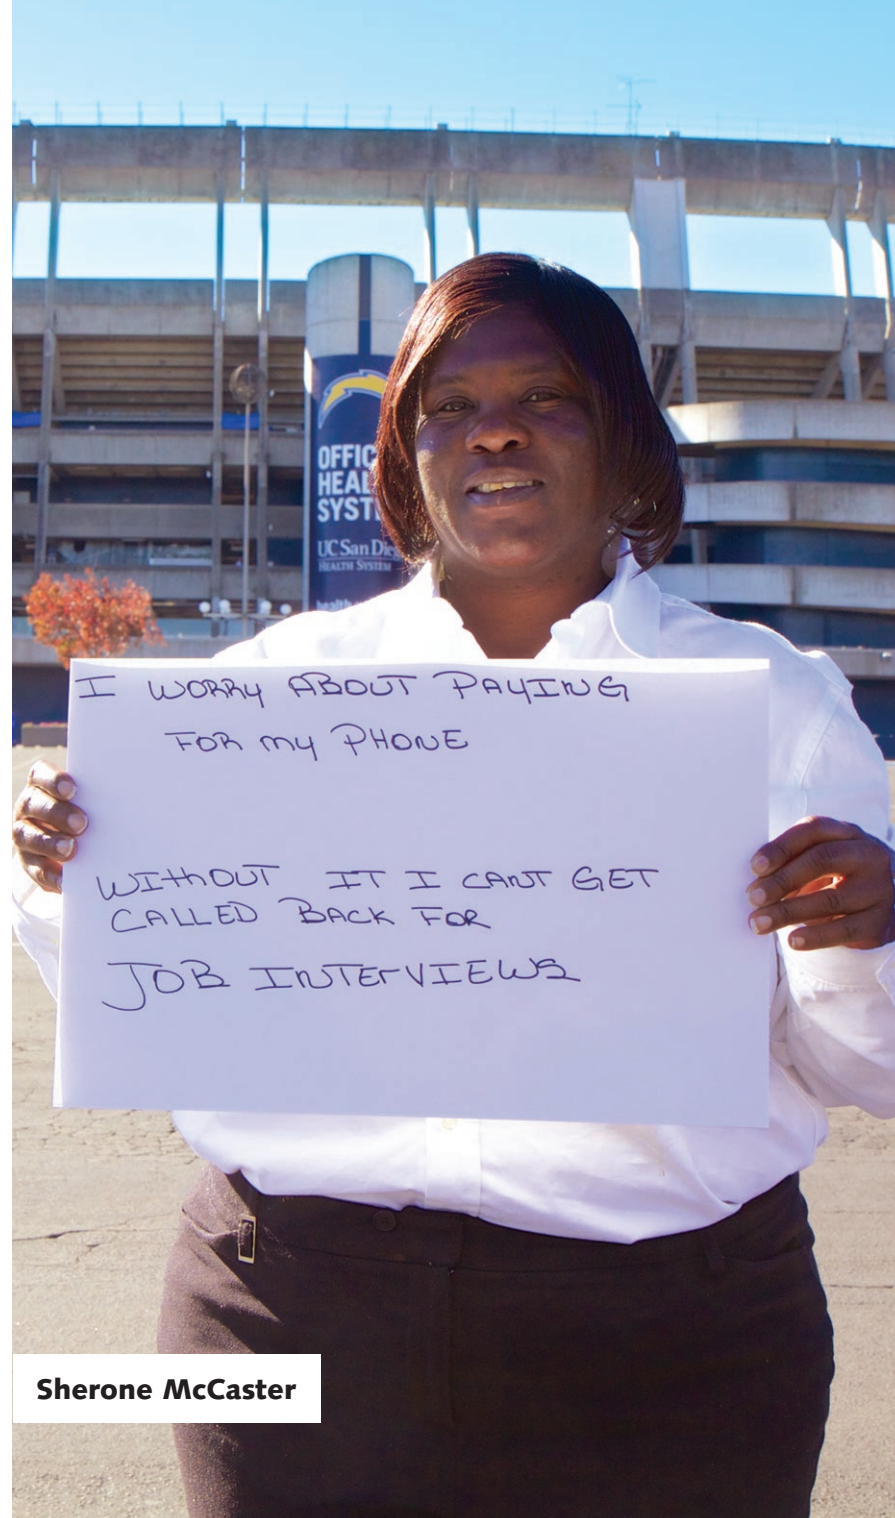 OFFIC
HEAL
SYST
UC San Die
HEALTH SYSTEM
health
I WORRY ABOUT PAYING
FOR my PHONE
WIthOUT IT I CANT GET
CALLED BACK FOR
JOB INTErVIEWS
Sherone McCaster